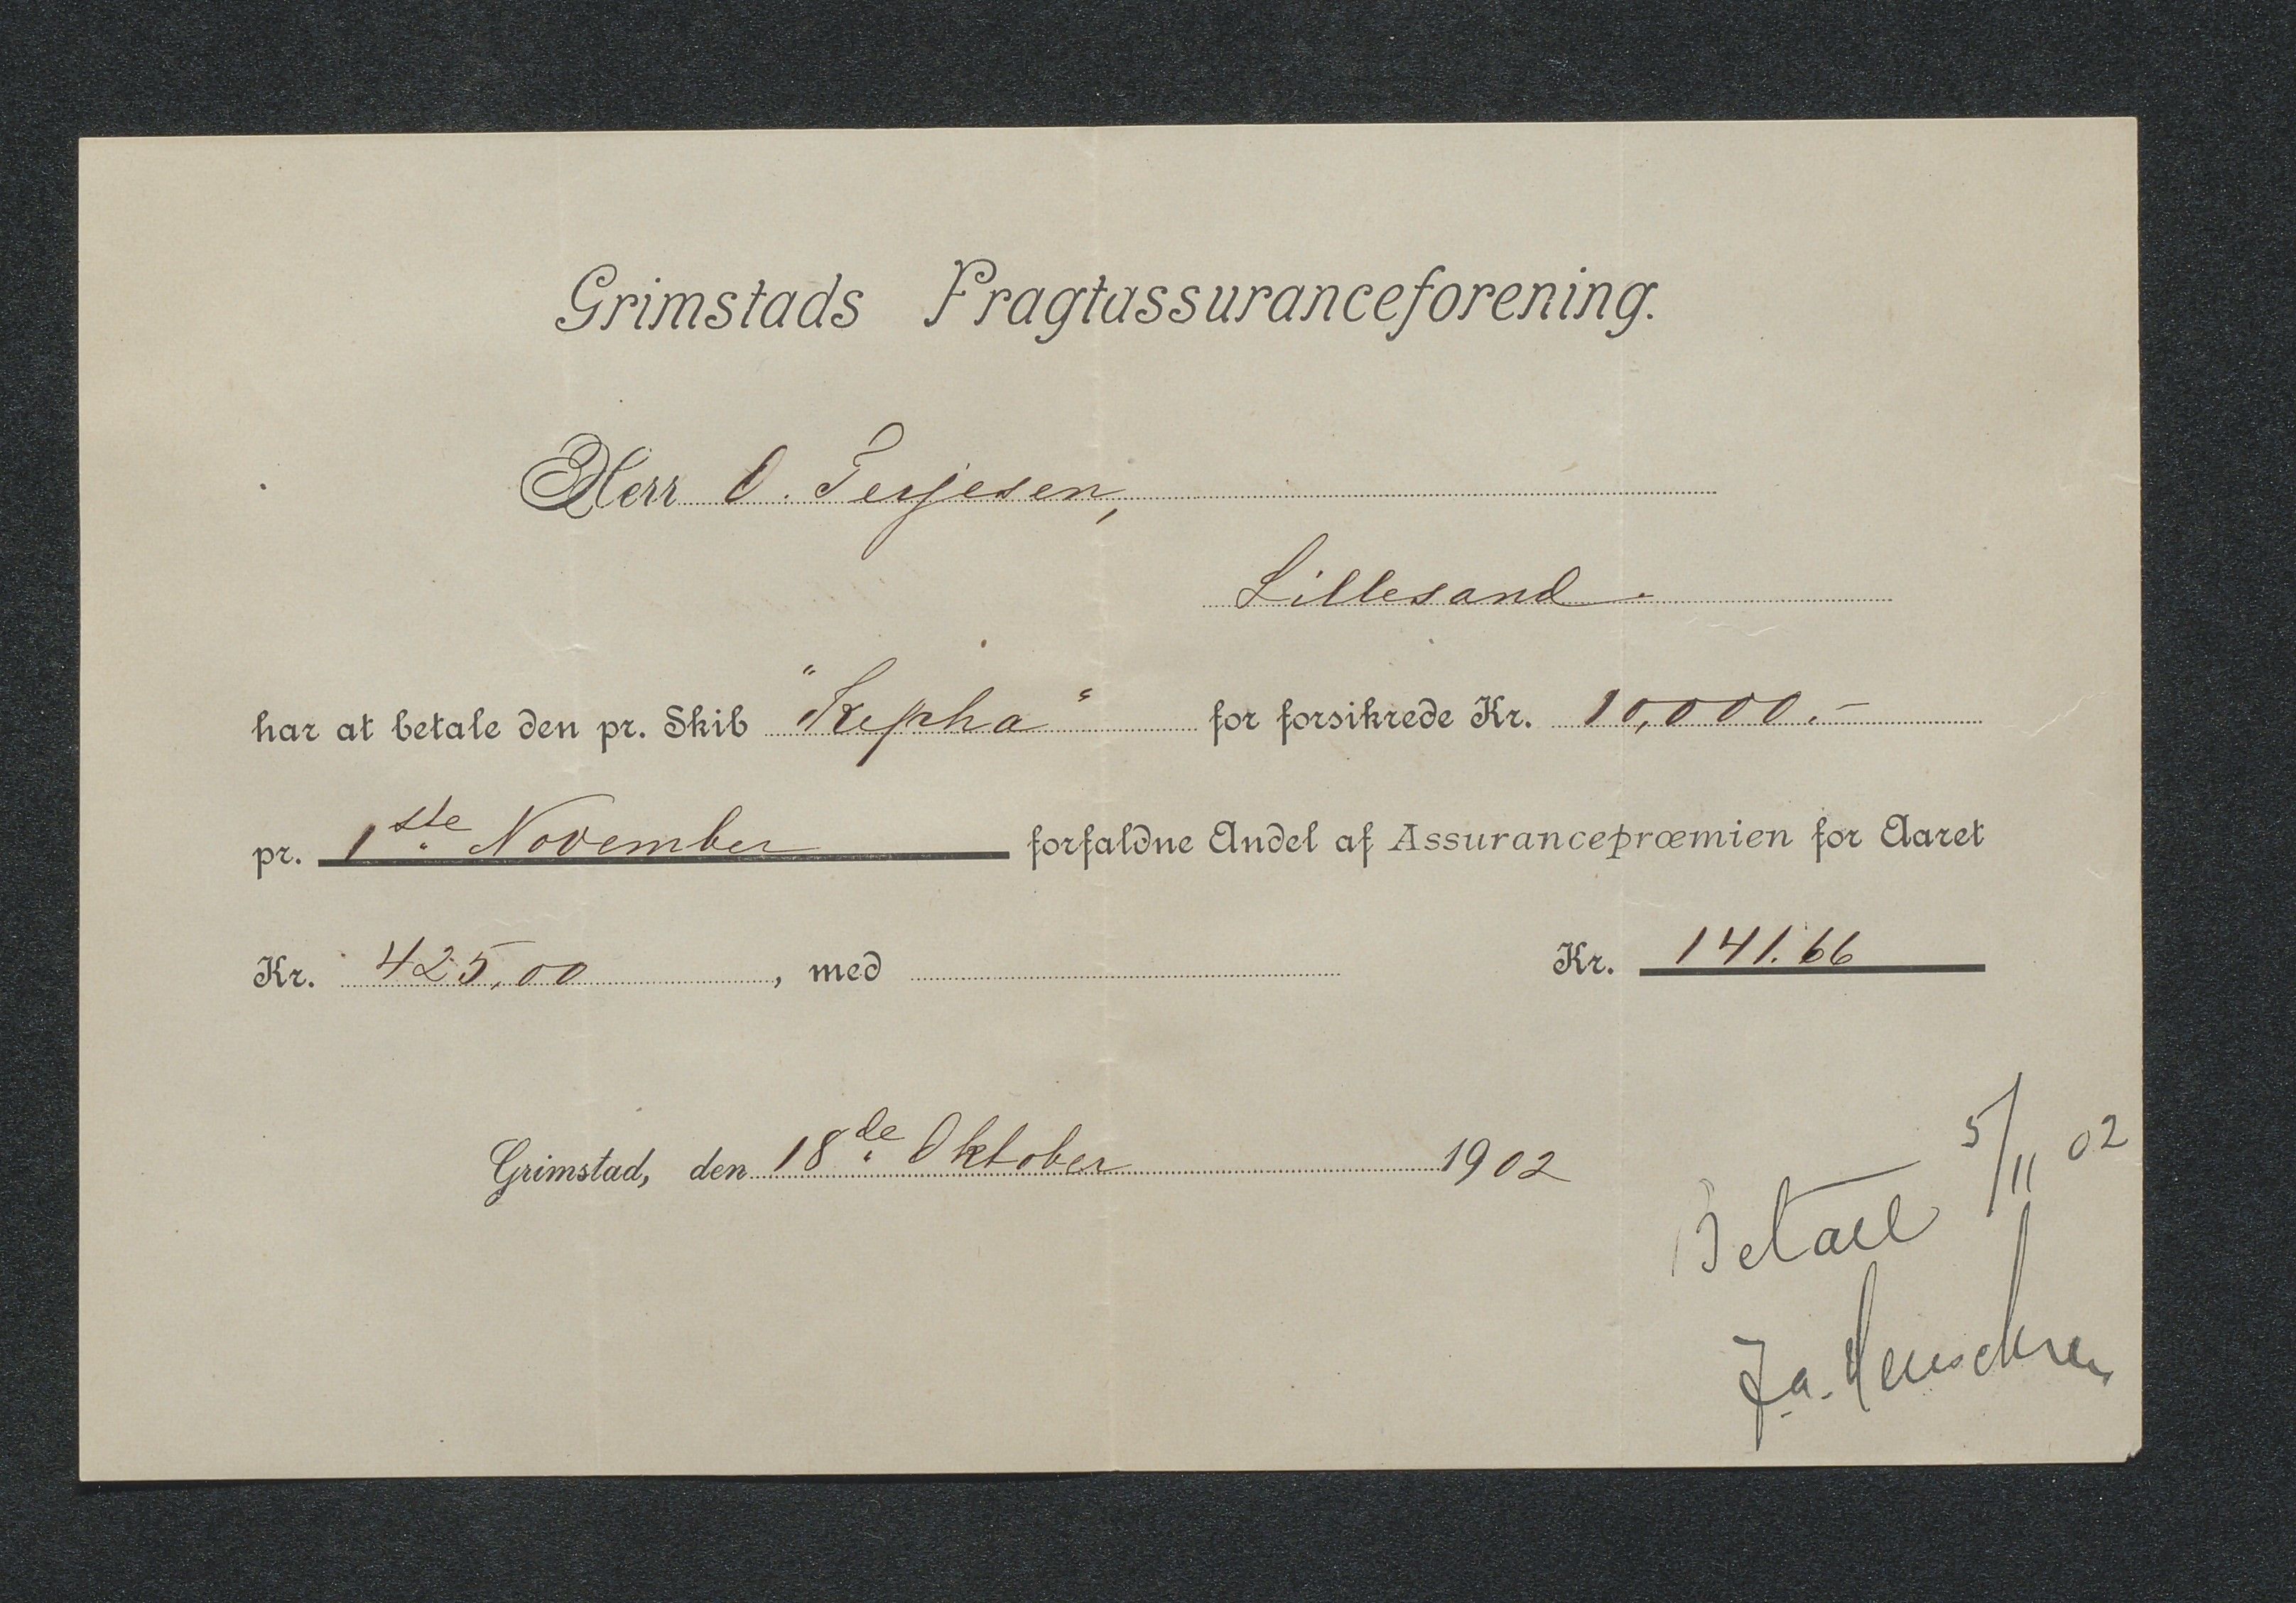 Grimstads Fragtassuranceforening.
Herr O. Terjesen,
Lillesand.
har at betale den pr. Skib "Kepha" for forsikrede Kr. 10,000.-
pr. 1ste November forfaldne Andel af Assurancepræmien for Aaret
Kr. 425,00, med Kr. 141.66
Grimstad, den 18de Oktober 1902
5/11 02
Betalt